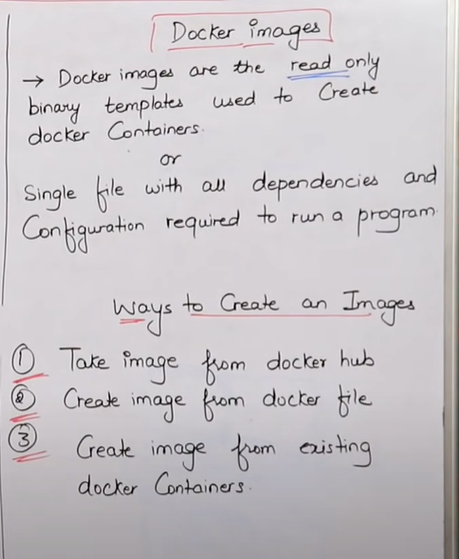 Docker images
→ Docker images are the read only
binary templates used to Create
docker Containers.
or
Single file with all dependencies and
Configuration required to run a program.
Ways to Create an Images
① Take image from docker hub
② Create image from docker file
③ Create image from existing
docker Containers.